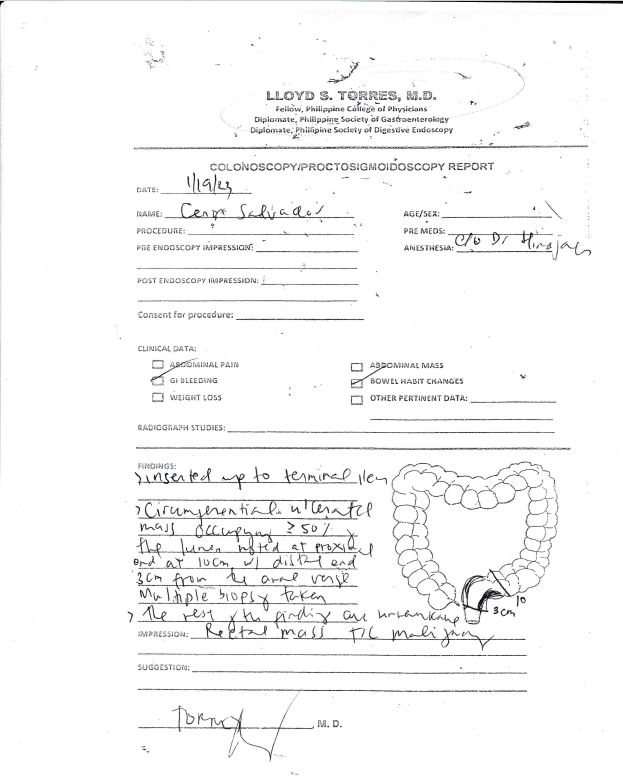 LLOYD S. TORRES, M.D.
Fellow, Philippine College of Physicians
Diplomate, Philippine Society of Gastroenterology
Diplomate, Philippine Society of Digestive Endoscopy
COLONOSCOPY/PROCTOSIGMOIDOSCOPY REPORT
DATE: 1/19/23
NAME: Salvador AGE/SEX:
PROCEDURE: PRE MEDS:
PRE ENDOSCOPY IMPRESSION: ANESTHESIA: c/o Dr
POST ENDOSCOPY IMPRESSION:
Consent for procedure:
CLINICAL DATA:
ABDOMINAL PAIN ABDOMINAL MASS
GI BLEEDING BOWEL HABIT CHANGES
WEIGHT LOSS OTHER PERTINENT DATA:
RADIOGRAPH STUDIES:
FINDINGS:
> inserted up to terminal ileum
> Circumferential ulcerated
mass occupying ≥ 50% of
the lumen noted at proximal
end at 10cm w/ distal end
3cm from the anal verge
Multiple biopsy taken
> The rest of the finding are unremarkable
10
3cm
IMPRESSION: Rectal mass T/C malignancy
SUGGESTION:
Torres M.D.